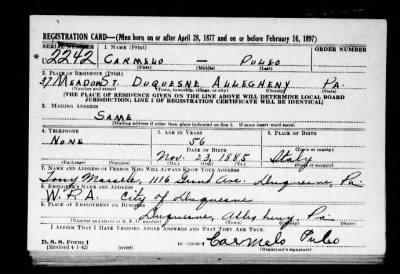 REGISTRATION CARD—(Men born on or after April 28, 1877 and on or before February 16, 1897)
SERIAL NUMBER 1. NAME (Print) ORDER NUMBER
2242 CARMELO — PULEO
(First) (Middle) (Last)
2. PLACE OF RESIDENCE (Print)
37 MEADOW ST. DUQUESNE ALLEGHENY PA.
(Number and street) (Town, township, village, or city) (County) (State)
[THE PLACE OF RESIDENCE GIVEN ON THE LINE ABOVE WILL DETERMINE LOCAL BOARD
JURISDICTION; LINE 2 OF REGISTRATION CERTIFICATE WILL BE IDENTICAL]
3. MAILING ADDRESS
SAME
[Mailing address if other than place indicated on line 2. If same insert word same]
4. TELEPHONE 5. AGE IN YEARS 6. PLACE OF BIRTH
NONE 56
DATE OF BIRTH
Nov. 23, 1885 Italy
(Exchange) (Number) (Mo.) (Day) (Yr.) (State or country)
7. NAME AND ADDRESS OF PERSON WHO WILL ALWAYS KNOW YOUR ADDRESS
Tony 1116 Ave., Duquesne, Pa.
8. EMPLOYER'S NAME AND ADDRESS
W.P.A. City of Duquesne
9. PLACE OF EMPLOYMENT OR BUSINESS
Duquesne, Allegheny, Pa.
(Number and street or R. F. D. number) (Town) (County) (State)
I AFFIRM THAT I HAVE VERIFIED ABOVE ANSWERS AND THAT THEY ARE TRUE.
D. S. S. Form 1
(Revised 4-1-42) (over) Carmelo Puleo
(Registrant's signature)